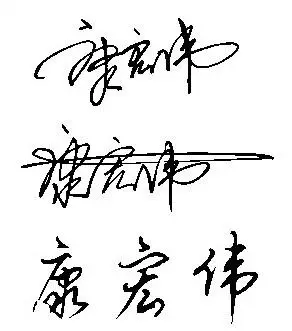 康宏伟
康宏伟
康宏伟